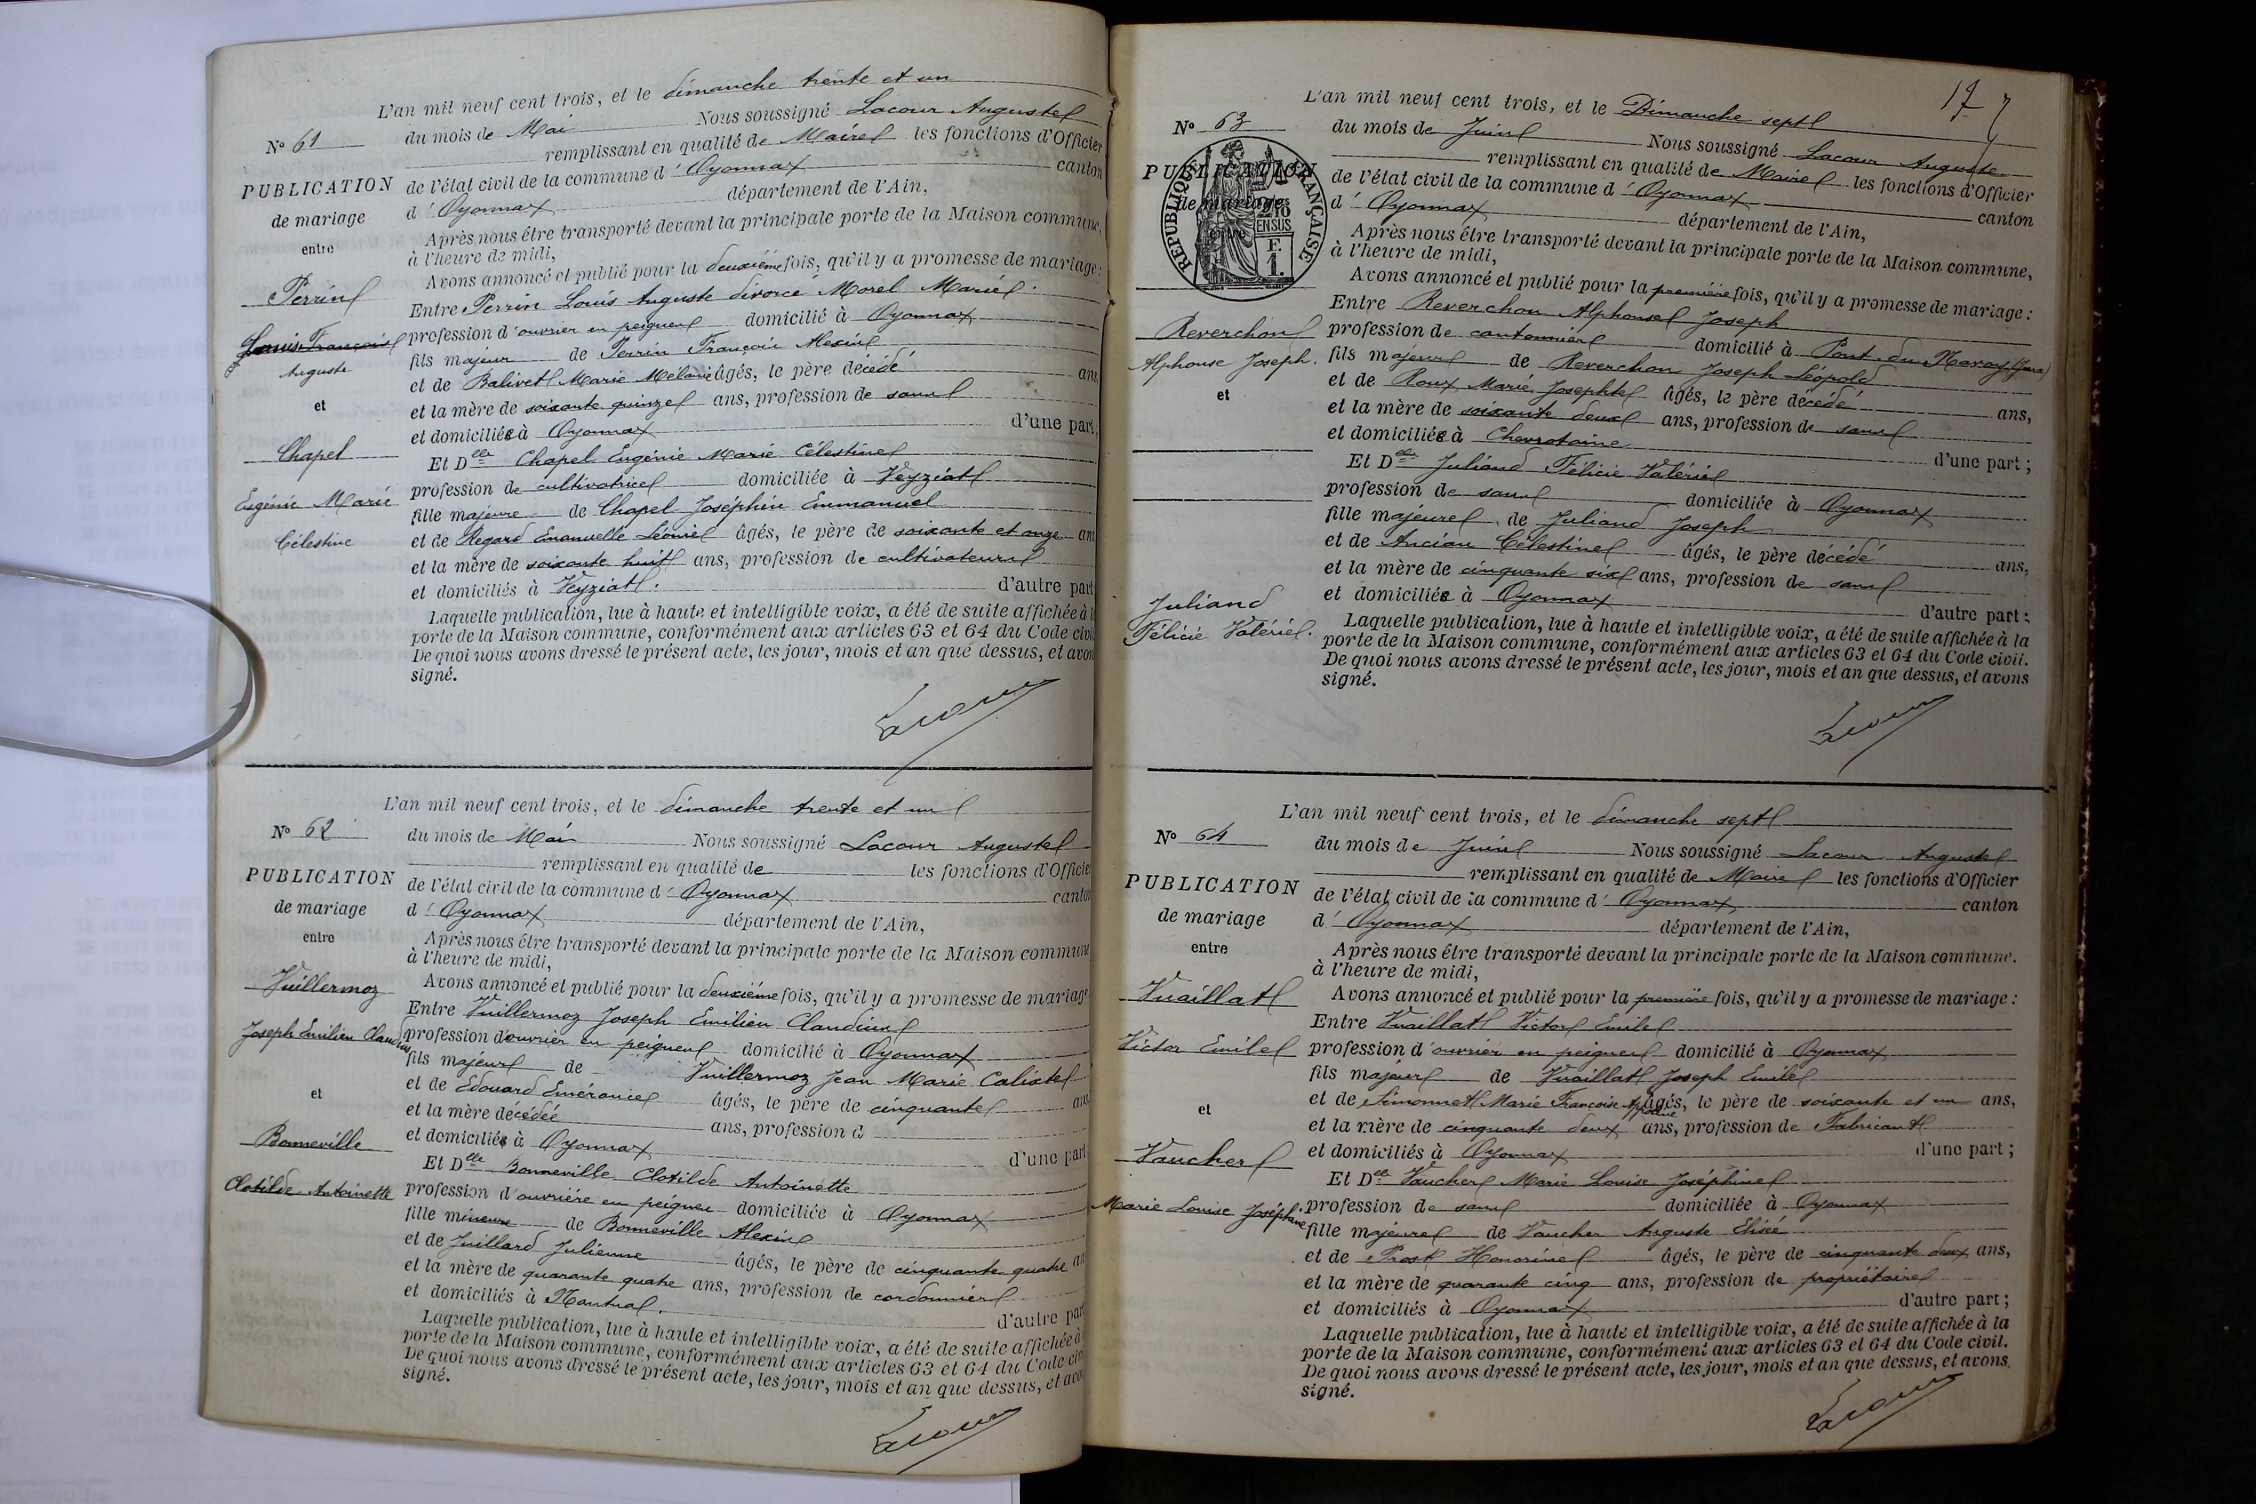 L'an mil neuf cent trois, et le dimanche trente et un
N° 61
du mois de Mai Nous soussigné Lacour Auguste
remplissant en qualité de Maire les fonctions d'Officier
PUBLICATION
de mariage
entre
Perrin
Louis François
Auguste
et
Chapel
Eugénie Marie
Célestine
de l'état civil de la commune d' Oyonnax canton
d' Oyonnax département de l'Ain,
Après nous être transporté devant la principale porte de la Maison commune,
à l'heure de midi,
Avons annoncé et publié pour la deuxième fois, qu'il y a promesse de mariage :
Entre Perrin Louis Auguste divorcé Morel Marie
profession d'ouvrier en peignes domicilié à Oyonnax
fils majeur de Perrin François Alexis
et de Balivet Marie Mélanie âgés, le père décédé ans,
et la mère de soixante quinze ans, profession de sans
et domiciliés à Oyonnax d'une part
Et Delle Chapel Eugénie Marie Célestine
profession de cultivatrice domiciliée à Veyziat
fille majeure de Chapel Joséphin Emmanuel
et de Regard Emanuelle Léonie âgés, le père de soixante et onze ans
et la mère de soixante huit ans, profession de cultivateurs
et domiciliés à Veyziat. d'autre part
Laquelle publication, lue à haute et intelligible voix, a été de suite affichée à la
porte de la Maison commune, conformément aux articles 63 et 64 du Code civil
De quoi nous avons dressé le présent acte, les jour, mois et an que dessus, et avons
signé.
Lacour
L'an mil neuf cent trois, et le dimanche trente et un
N° 62
du mois de Mai Nous soussigné Lacour Auguste
remplissant en qualité de les fonctions d'Officier
PUBLICATION
de mariage
entre
Vuillermoz
Joseph Emilien Claudius
et
Bonneville
Clotilde Antoinette
de l'état civil de la commune d' Oyonnax canton
d' Oyonnax département de l'Ain,
Après nous être transporté devant la principale porte de la Maison commune
à l'heure de midi,
Avons annoncé et publié pour la deuxième fois, qu'il y a promesse de mariage
Entre Vuillermoz Joseph Emilien Claudius
profession d'ouvrier en peignes domicilié à Oyonnax
fils majeur de Vuillermoz Jean Marie Calixte
et de Edouard Emérancie âgés, le père de cinquante ans
et la mère décédée ans, profession d
et domiciliés à Oyonnax d'une part
Et Delle Bonneville Clotilde Antoinette
profession d'ouvrière en peignes domiciliée à Oyonnax
fille mineure de Bonneville Alexis
et de Juillard Julienne âgés, le père de cinquante quatre an
et la mère de quarante quatre ans, profession de cordonnier
et domiciliés à Nantua. d'autre part
Laquelle publication, lue à haute et intelligible voix, a été de suite affichée à
porte de la Maison commune, conformément aux articles 63 et 64 du Code civ
De quoi nous avons dressé le présent acte, les jour, mois et an que dessus, et avo
signé.
Lacour
17
L'an mil neuf cent trois, et le Dimanche sept
N° 63
du mois de Juin Nous soussigné Lacour Auguste
remplissant en qualité de Maire les fonctions d'Officier
PUBLICATION
de mariage
entre
REPUBLIQUE FRANÇAISE
2/10
EN SUS
F.
1.
Reverchon
Alphonse Joseph.
et
Juliand
Félicie Valérie.
de l'état civil de la commune d' Oyonnax canton
d' Oyonnax département de l'Ain,
Après nous être transporté devant la principale porte de la Maison commune,
à l'heure de midi,
Avons annoncé et publié pour la première fois, qu'il y a promesse de mariage :
Entre Reverchon Alphonse Joseph
profession de cantonnier domicilié à Pont du Navoy (Jura)
fils majeur de Reverchon Joseph Léopold
et de Roux Marie Josephte âgés, le père décédé ans,
et la mère de soixante deux ans, profession de sans
et domiciliés à Chevrotaine d'une part ;
Et Delle Juliand Félicie Valérie
profession de sans domiciliée à Oyonnax
fille majeure de Juliand Joseph
et de Ancian Célestine âgés, le père décédé ans,
et la mère de cinquante six ans, profession de sans
et domiciliés à Oyonnax d'autre part :
Laquelle publication, lue à haute et intelligible voix, a été de suite affichée à la
porte de la Maison commune, conformément aux articles 63 et 64 du Code civil.
De quoi nous avons dressé le présent acte, les jour, mois et an que dessus, et avons
signé.
Lacour
L'an mil neuf cent trois, et le dimanche sept
N° 64
du mois de Juin Nous soussigné Lacour Auguste
remplissant en qualité de Maire les fonctions d'Officier
PUBLICATION
de mariage
entre
Vuaillat
Victor Emile
et
Vaucher
Marie Louise Joséphine
de l'état civil de la commune d' Oyonnax canton
d' Oyonnax département de l'Ain,
Après nous être transporté devant la principale porte de la Maison commune.
à l'heure de midi,
Avons annoncé et publié pour la première fois, qu'il y a promesse de mariage :
Entre Vuaillat Victor Emile
profession d'ouvrier en peignes domicilié à Oyonnax
fils majeur de Vuaillat Joseph Emile
et de Simonnet Marie Françoise âgés, le père de soixante et un ans,
et la mère de cinquante deux ans, profession de Fabricant
et domiciliés à Oyonnax d'une part ;
Et Delle Vaucher Marie Louise Joséphine
profession de sans domiciliée à Oyonnax
fille majeure de Vaucher Auguste Elisée
et de Prost Honorine âgés, le père de cinquante deux ans,
et la mère de quarante cinq ans, profession de propriétaire
et domiciliés à Oyonnax d'autre part ;
Laquelle publication, lue à haute et intelligible voix, a été de suite affichée à la
porte de la Maison commune, conformément aux articles 63 et 64 du Code civil.
De quoi nous avons dressé le présent acte, les jour, mois et an que dessus, et avons
signé.
Lacour